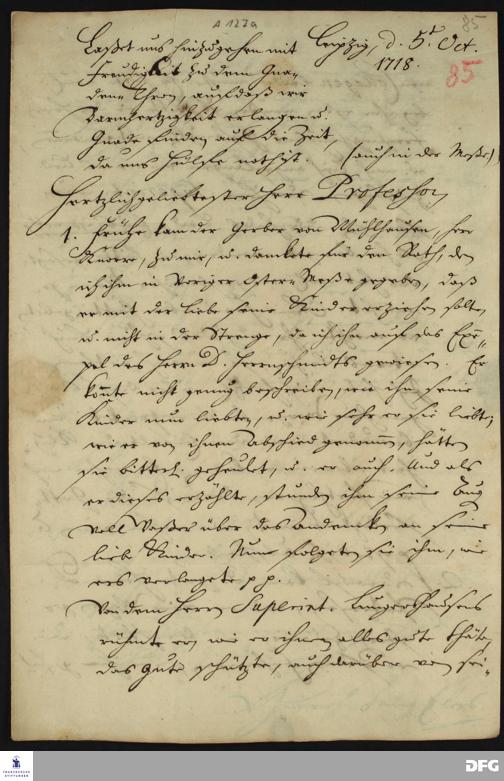 A 127a
85
Laßet uns hinzugehen mit
Leipzig, d. 5t. Oct.
1718.
85
Freudigkeit zu dem Gna-
den-Thron, auf daß wir
Barmhertzigkeit erlangen u.
Gnade finden auf die Zeit,
da uns Hülffe noth ist. (auch in der Meße)
Hertzlichgeliebtester Herr Professor,
1. Frühe kam der Gerber von Mühlhausen, Herr
Knorre, zu mir, u. danckete für den Rath, den
ich ihm in voriger Oster-Meße gegeben, daß
er mit der Liebe seine Kinder erziehen solte,
u. nicht in der Strenge, da ich ihn auf das Exem-
pel des Herrn D. Herrnschmidts gewiesen. Er
könnte nicht genug beschreiben, wie ihn seine
Kinder nun liebten, u. wie sehr er sie liebte;
wie er von ihnen Abschied genommen, hätten
sie bitterl. geheulet, u. er auch. Und als
er dieses erzählte, stunden ihm seine Aug
voll Waßer über das Andencken an seine
liebe Kinder. Nun folgeten sie ihm, wie
ers verlangete pp.
Von dem Herrn Superint.
rühmte er, wie er ihnen alles gute thäte,
das gute schützte, auch darüber von sei-
FRANCKESCHE STIFTUNGEN
DFG